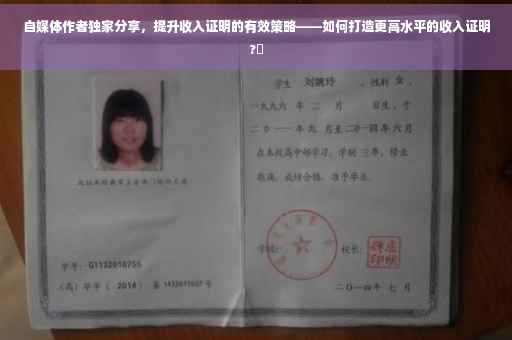 自媒体作者独家分享，提升收入证明的有效策略——如何打造更高水平的收入证明
?
学生 刘婉玲 ，性别 女 ，
一九九六 年 二 月 日生，于
二〇一一年九 月至二〇一四年六月
在本校高中部学习，学制 三年，修业
期满，成绩合格，准予毕业。
学校：
校长：
学号：G1132010755
（高）毕字（ 2014 ）第 1432011027 号
二〇一四年 七 月